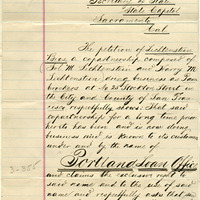 Secretary of State
State Capitol
Sacramento
Cal
The petition of Lichtenstein
Bros. a copartnership composed of
Sol. M. Lichtenstein and Harry M.
Lichtenstein doing business as Pawn
brokers at No 25 Stockton Street in
the City and County of San Fran
cisco respectfully shows: That said
copartnership for a long time prior
hereto has been and is now doing
business and is known to its customers
under and by the name of
Portland Loan Office
and claims the exclusive right to
said name and to the use of said
name and respectfully asks that